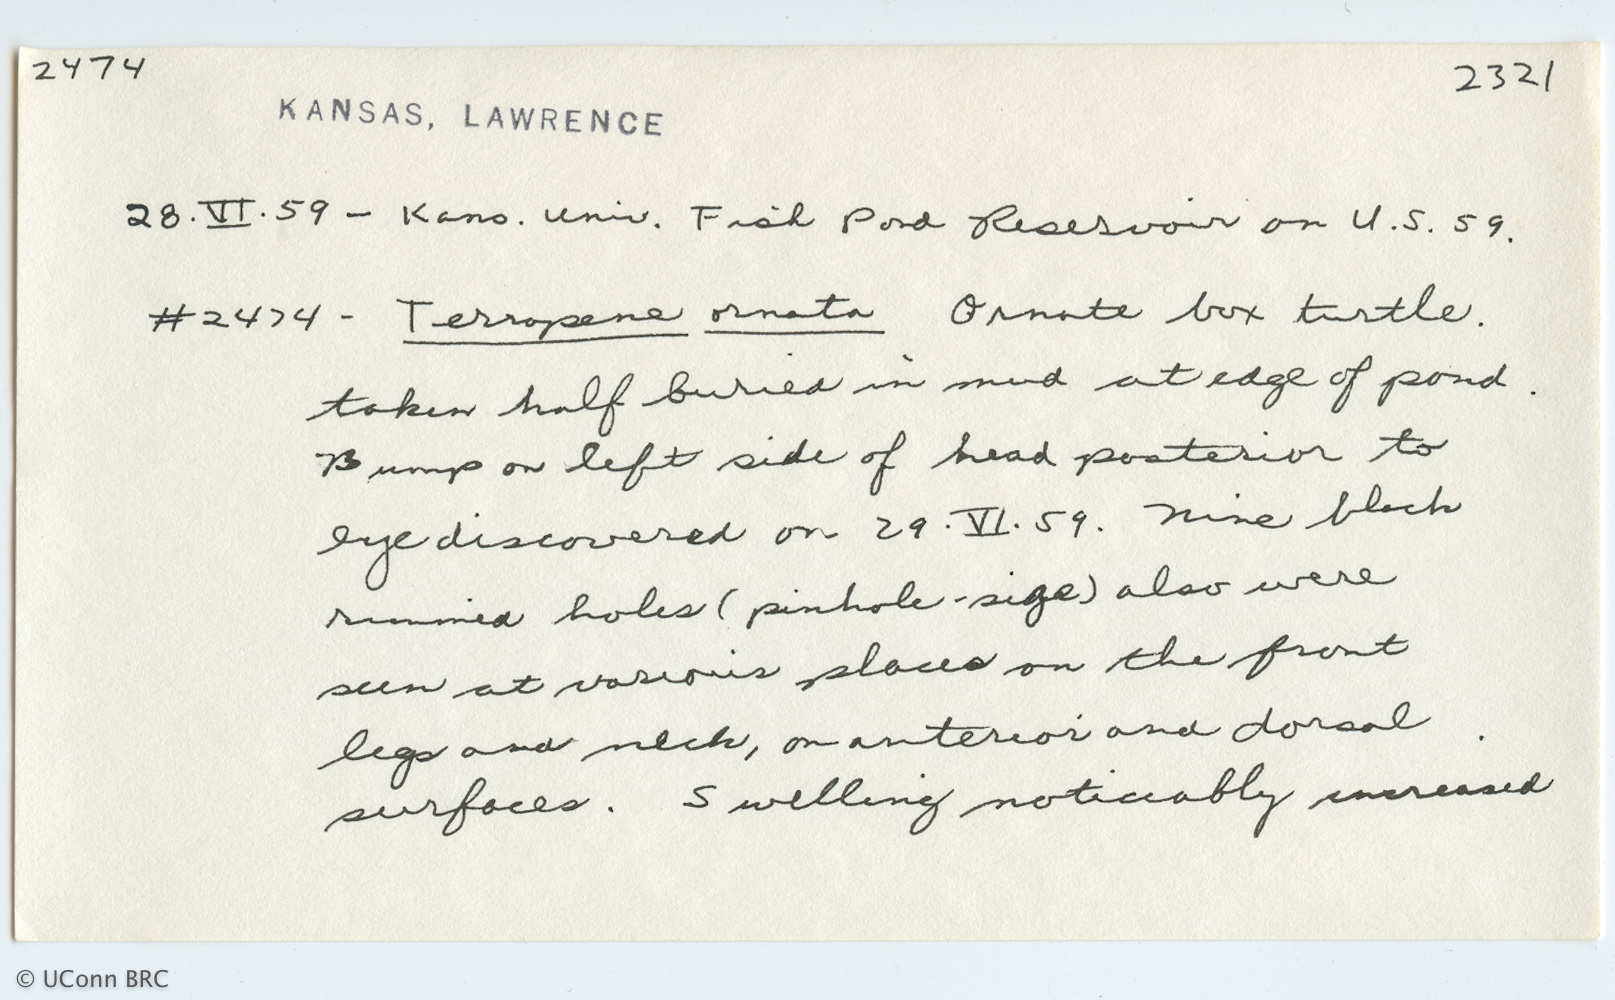 2474
2321
KANSAS, LAWRENCE
28.VI.59 – Kans. Univ. Fish Pond Reservoir on U.S. 59.
#2474 - Terrapene ornata Ornate box turtle.
taken half buried in mud at edge of pond.
Bump on left side of head posterior to
eye discovered on 29.VI.59. Nine black
rimmed holes (pinhole-size) also were
seen at various places on the front
legs and neck, on anterior and dorsal
surfaces. Swelling noticeably increased
© UConn BRC